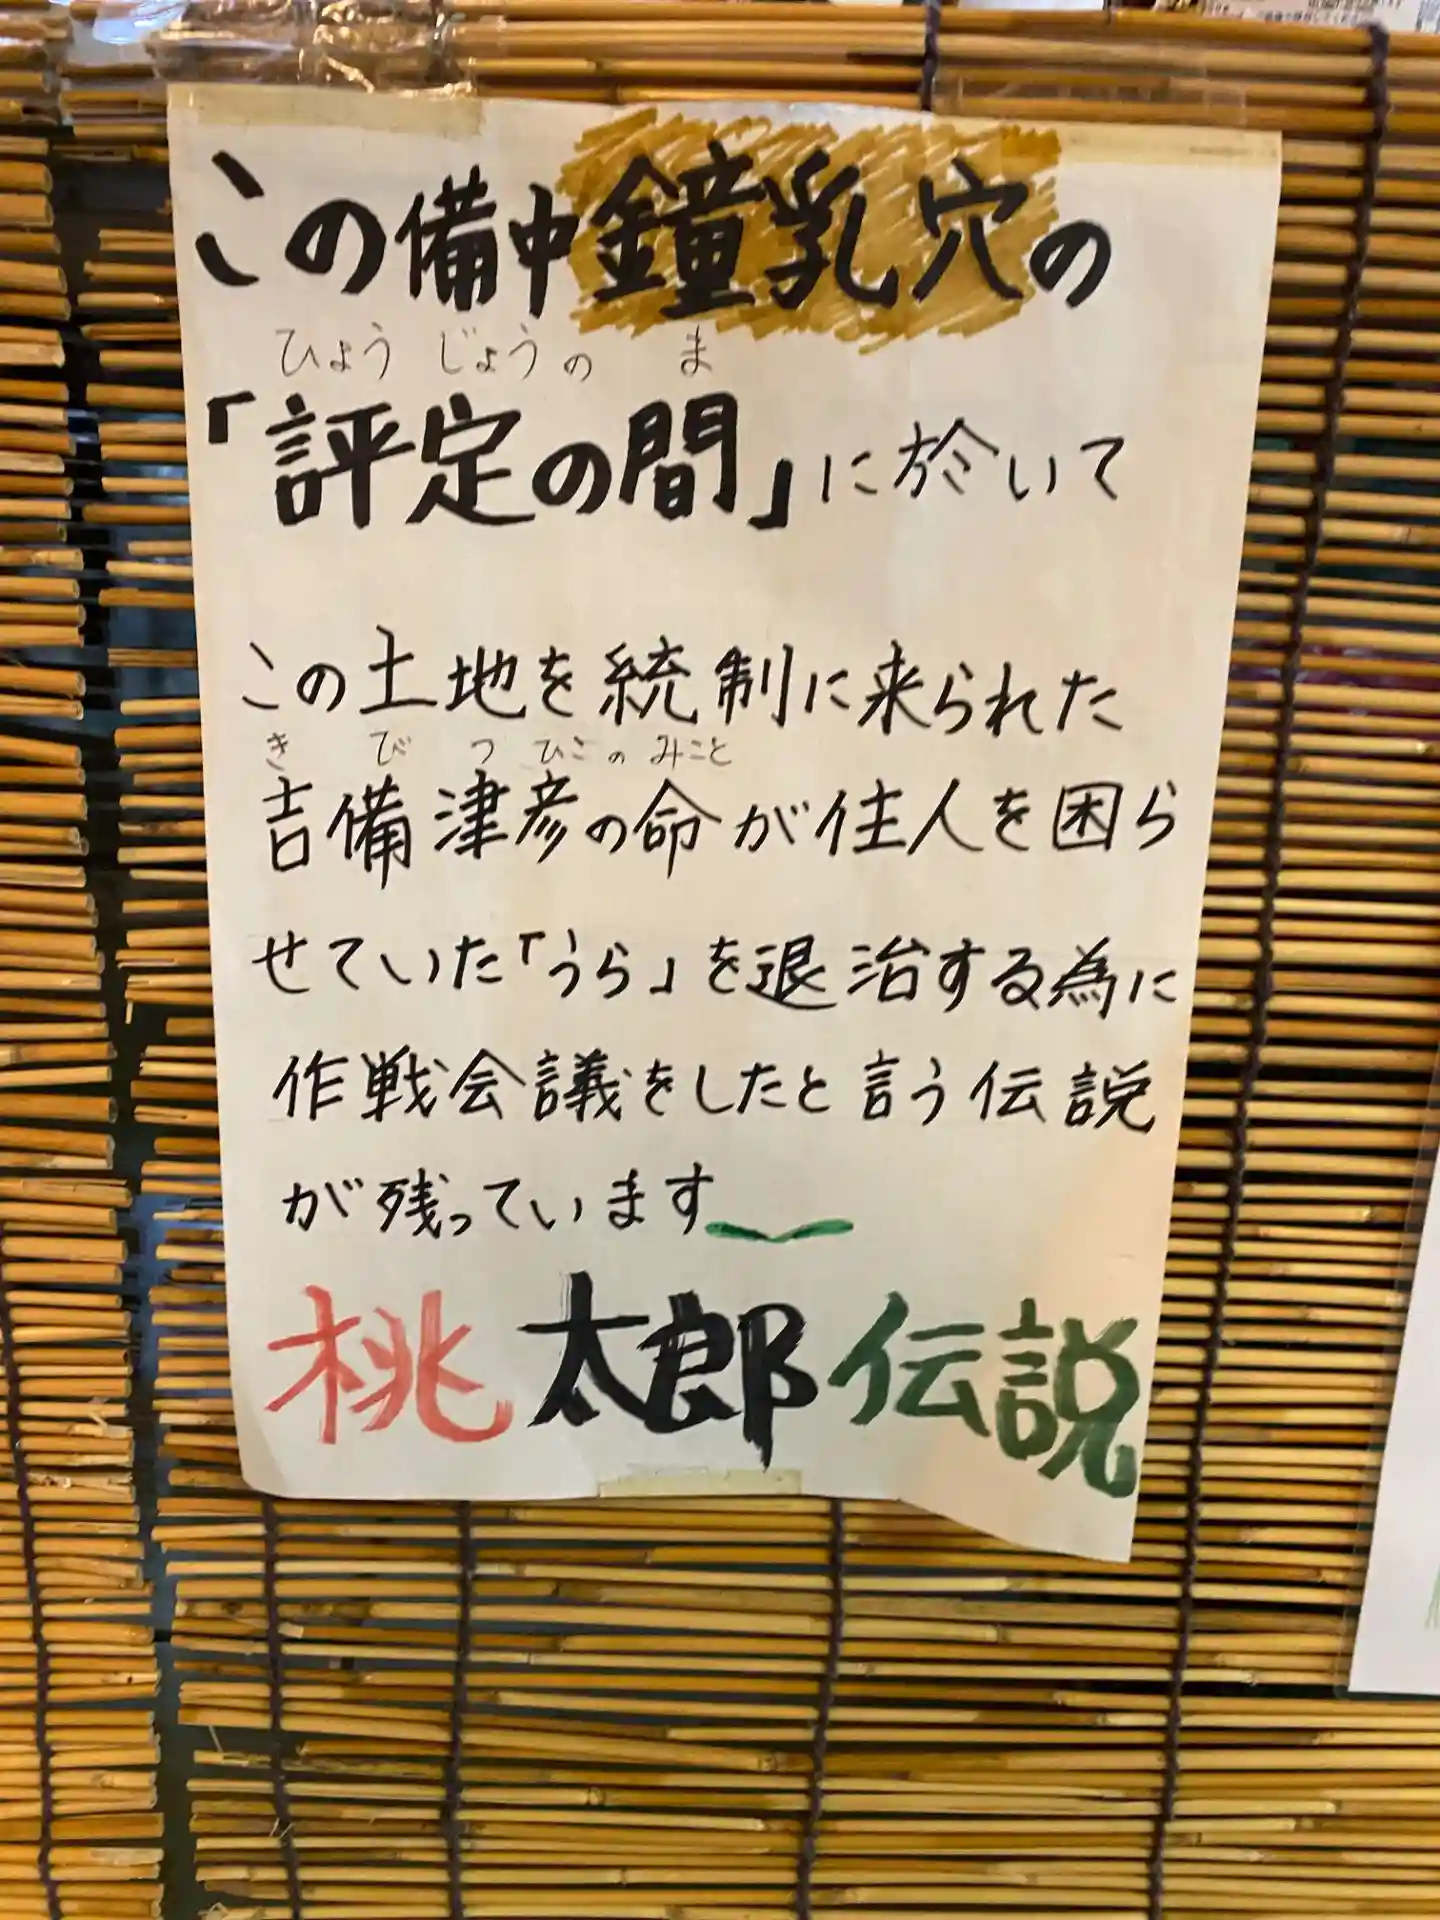 この備中鐘乳穴の
ひょうじょうの ま
「評定の間」に於いて
この土地を統制に来られた
き び つ ひこ の みこと
吉備津彦の命が住人を困ら
せていた「うら」を退治する為に
作戦会議をしたと言う伝説
が残っています
桃太郎伝説